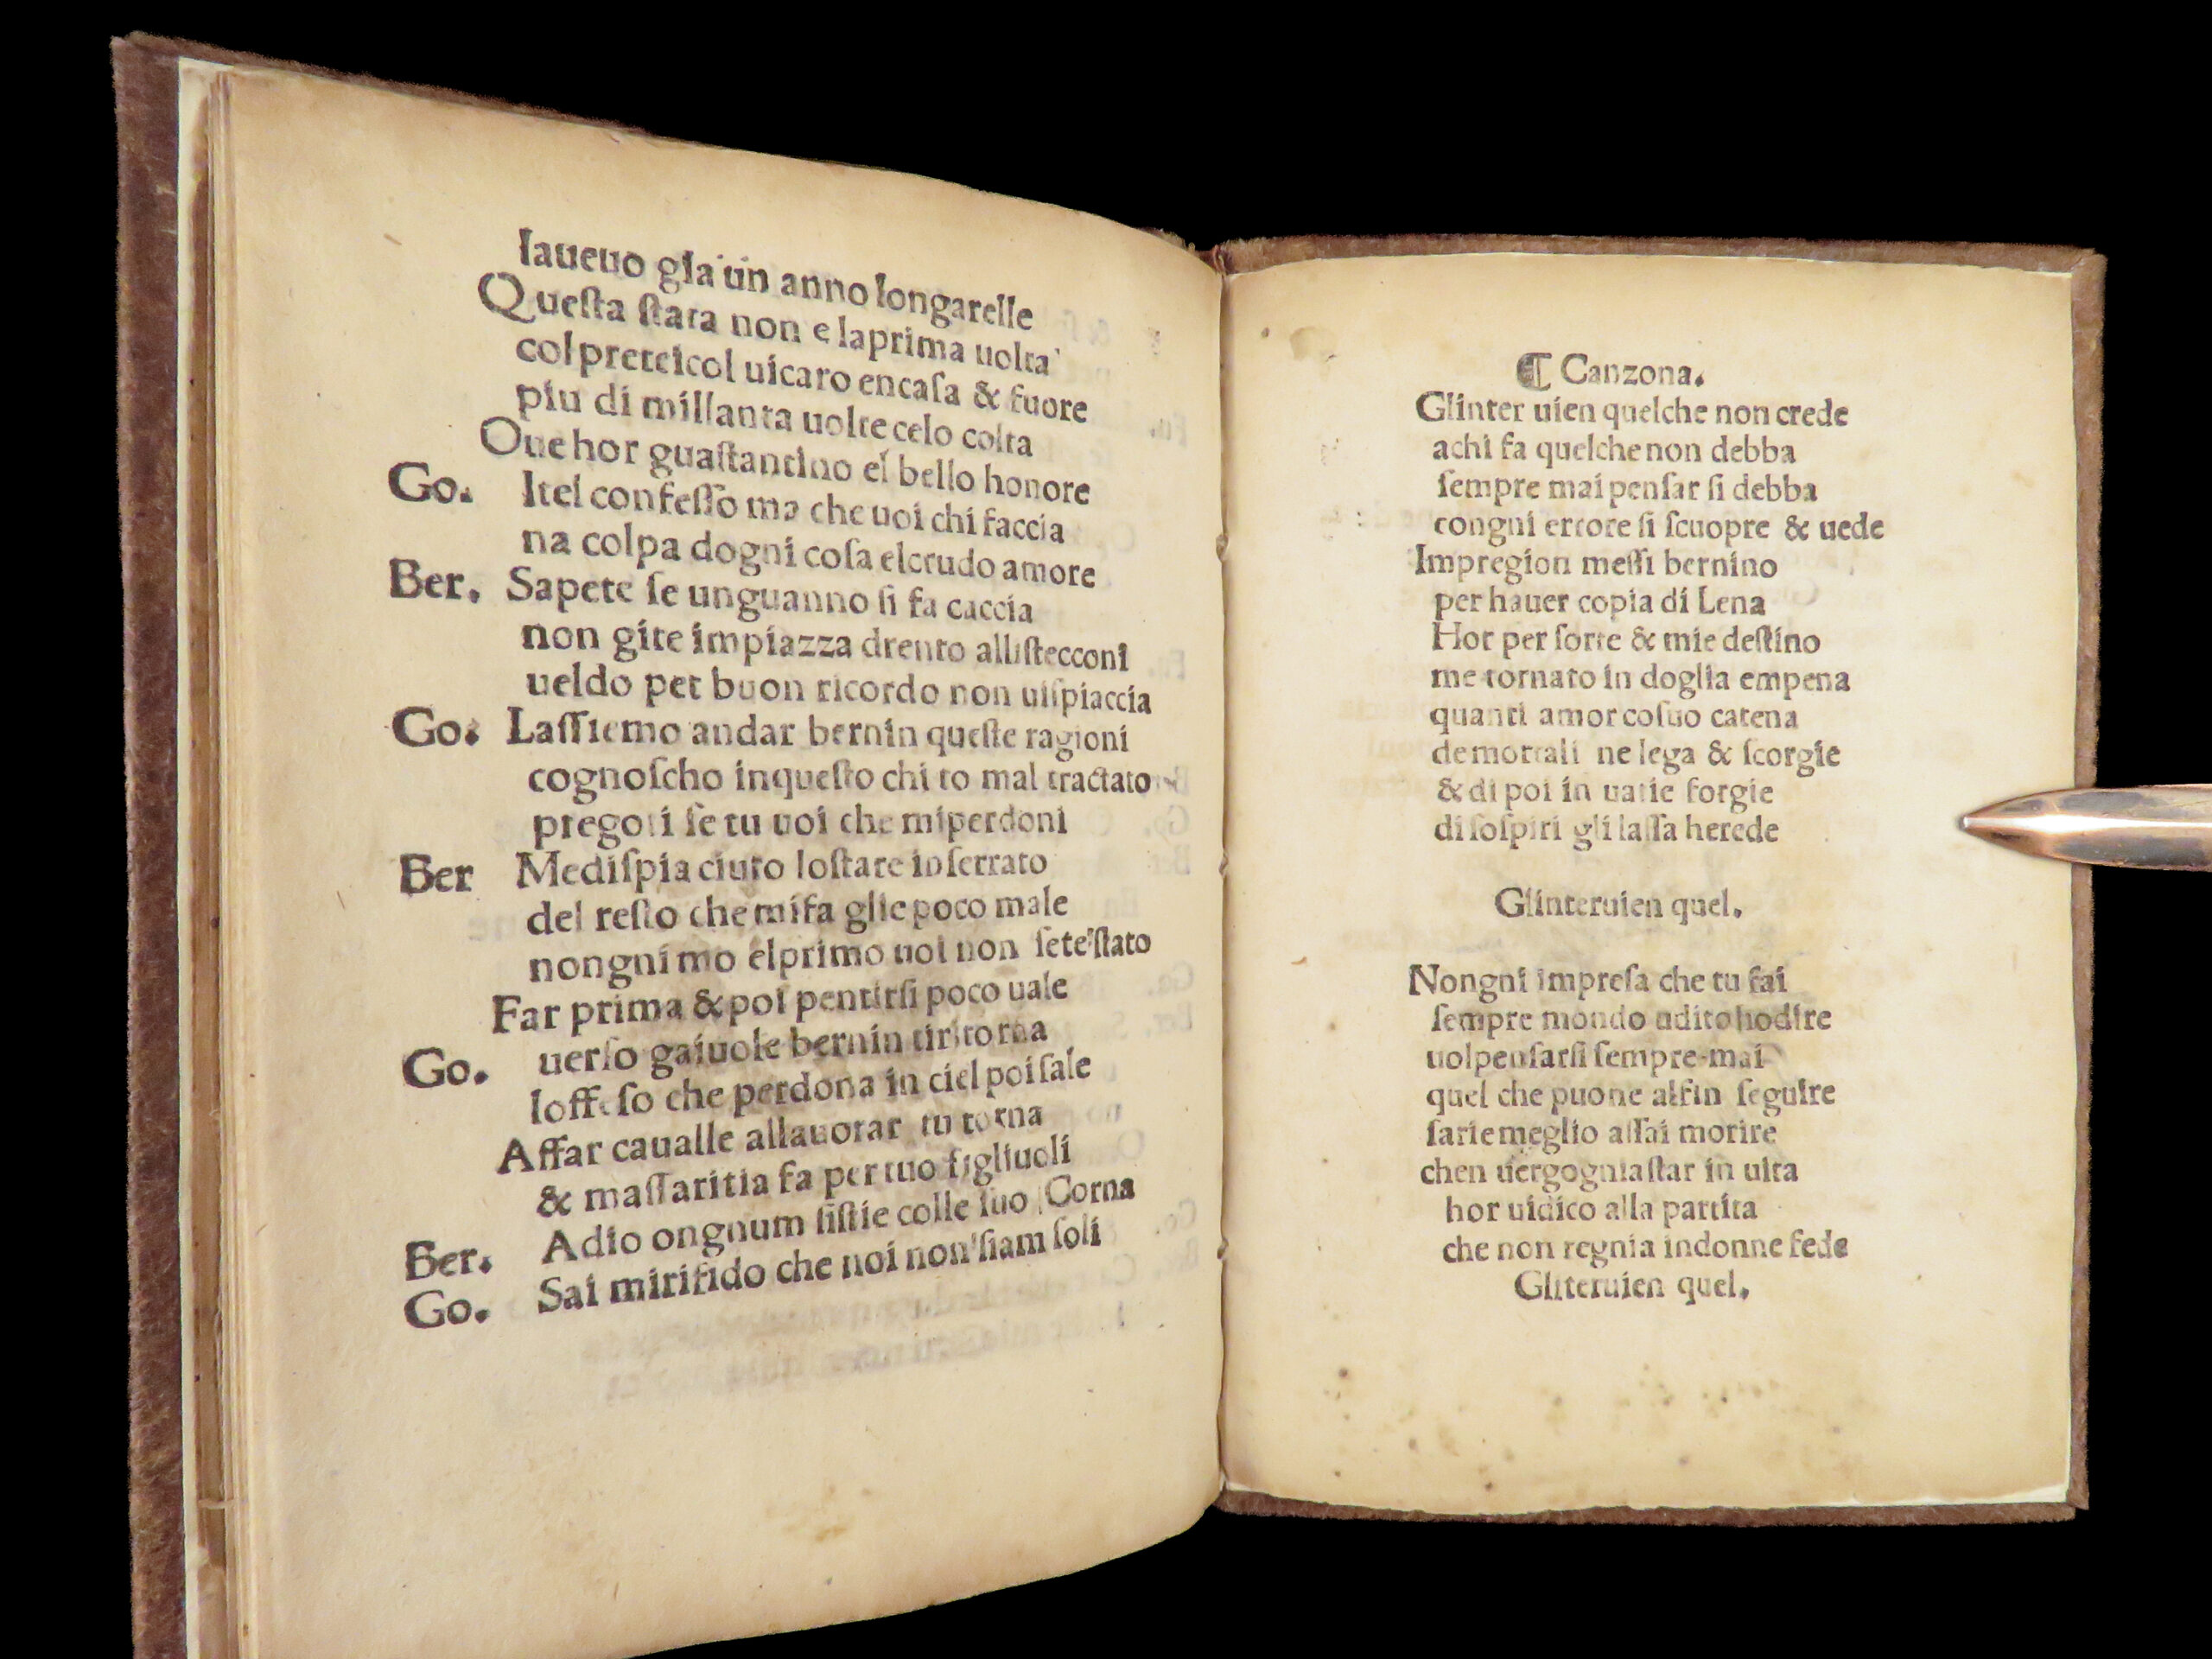 laueuo gia un anno longarelle
Queſta ſtata non e laprima uolta
colpreteicol uicaro encaſa & fuore
piu di millanta uolte celo colta
Oue hor guaſtantino el bello honore
Go. Itel confeſſo ma che uoi chi faccia
na colpa dogni coſa elcrudo amore
Ber. Sapete ſe unguanno ſi fa caccia
non gite impiazza drento alliſtecconi
ueldo per buon ricordo non uiſpiaccia
Go. Laſſiemo andar bernin queſte ragioni
cognoſcho inqueſto chi to mal tractato
pregoti ſe tu uoi che miperdoni
Ber Mediſpia ciuto loſtare inſerrato
del reſto che mifa glie poco male
nongni mo elprimo uoi non ſete ſtato
Far prima & poi pentirſi poco uale
Go. uerſo gaiuole bernin tiritorna
loffeſo che perdona in ciel poi ſale
Affar caualle allauorar tu torna
& maſſaritia fa per tuo figliuoli
Ber. Adio ongnum ſiſtie colle ſuo Corna
Go. Sai mirifido che noi non ſiam ſoli
¶ Canzona.
Glinter uien quelche non crede
achi fa quelche non debba
ſempre mai penſar ſi debba
congni errore ſi ſcuopre & uede
Impregion meſſi bernino
per hauer copia di Lena
Hor per ſorte & mie deſtino
me tornato in doglia empena
quanti amor coſuo catena
de mortali ne lega & ſcorgie
& di poi in uarie forgie
di ſoſpiri gli laſſa herede
Glinteruien quel.
Nongni impreſa che tu fai
ſempre mondo udito hodire
uolpenſarſi ſempre mai
quel che puone alfin ſeguire
ſarie meglio aſſai morire
chen uergognia ſtar in uita
hor uidico alla partita
che non regnia indonne fede
Gliteruien quel.